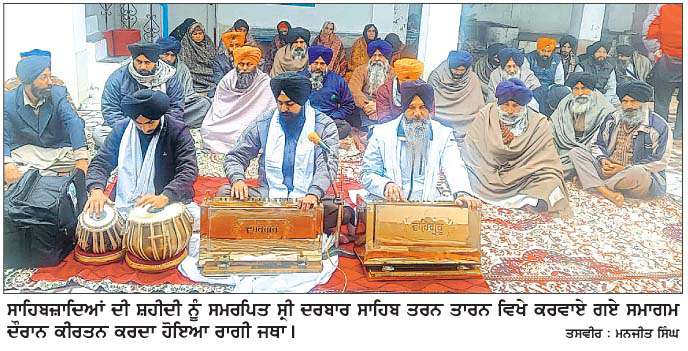 ਵਾਹਿਗੁਰੂ
ਵਾਹਿਗੁਰੂ
ਸਾਹਿਬਜ਼ਾਦਿਆਂ ਦੀ ਸ਼ਹੀਦੀ ਨੂੰ ਸਮਰਪਿਤ ਸ੍ਰੀ ਦਰਬਾਰ ਸਾਹਿਬ ਤਰਨ ਤਾਰਨ ਵਿਖੇ ਕਰਵਾਏ ਗਏ ਸਮਾਗਮ
ਦੌਰਾਨ ਕੀਰਤਨ ਕਰਦਾ ਹੋਇਆ ਰਾਗੀ ਜਥਾ।
ਤਸਵੀਰ : ਮਨਜੀਤ ਸਿੰਘ